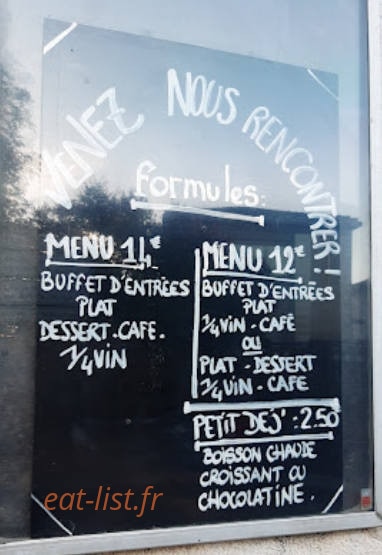 VENEZ NOUS RENCONTRER !
formules:
MENU 14€
BUFFET D'ENTRÉES
PLAT
DESSERT.CAFE.
1/4 VIN
MENU 12€
BUFFET D'ENTRÉES
PLAT
1/4 VIN - CAFÉ
OU
PLAT - DESSERT
1/4 VIN - CAFE
PETIT DEJ' : 2.50
BOISSON CHAUDE
CROISSANT OU
CHOCOLATINE.
eat-list.fr